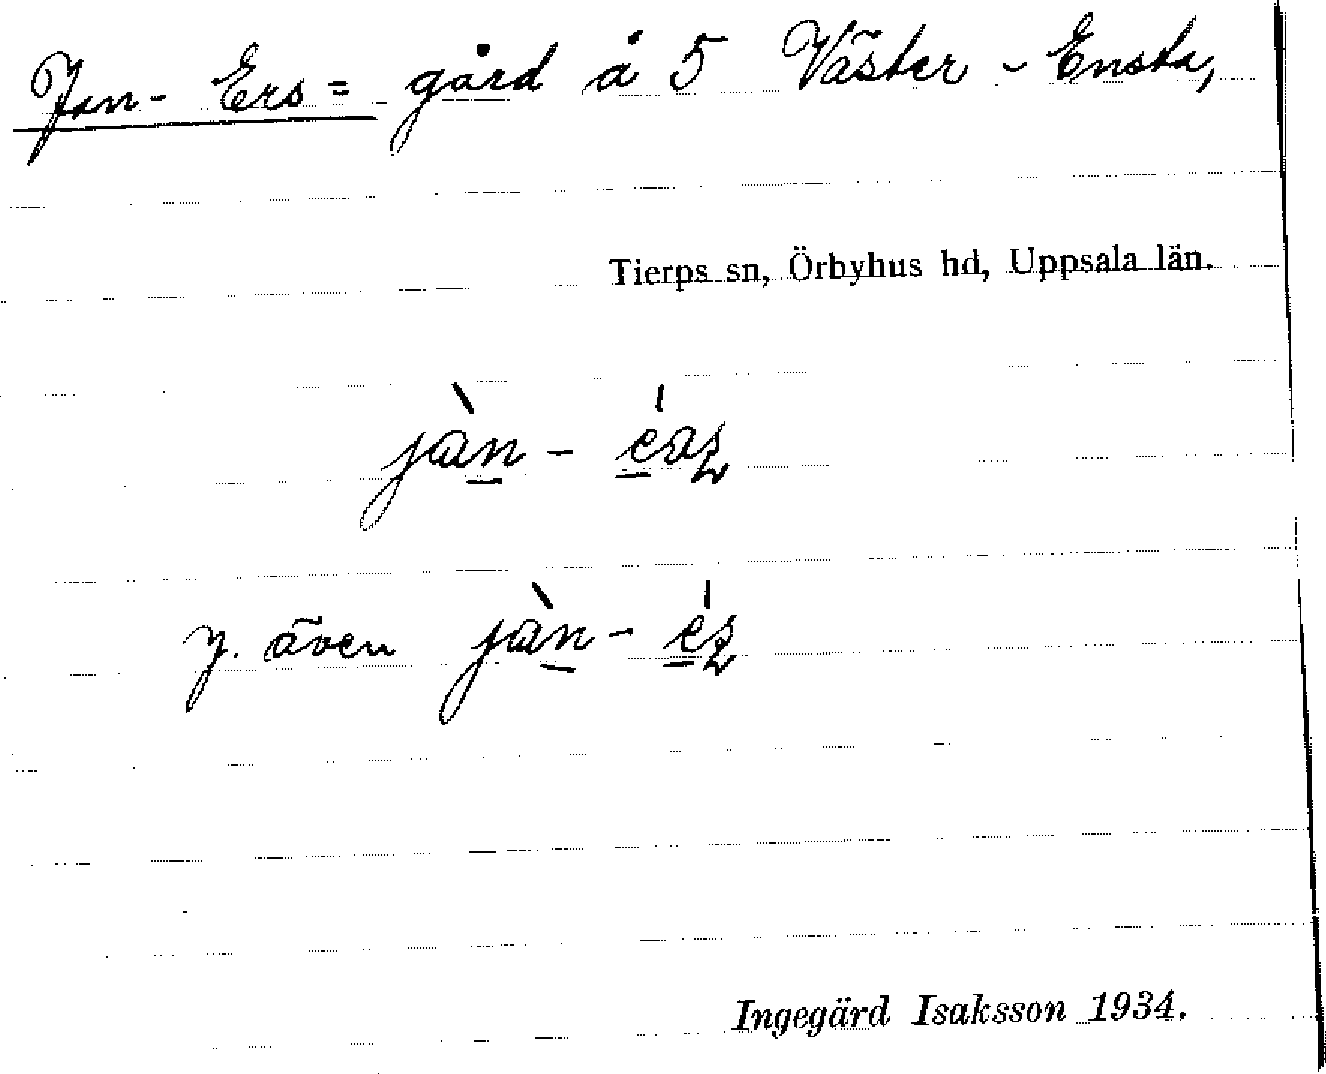 Jan-Ers= gård å 5 Väster-Ensta,
Tierps sn, Örbyhus hd, Uppsala län.
jàn-
y. även jàn-
Ingegärd Isaksson 1934.